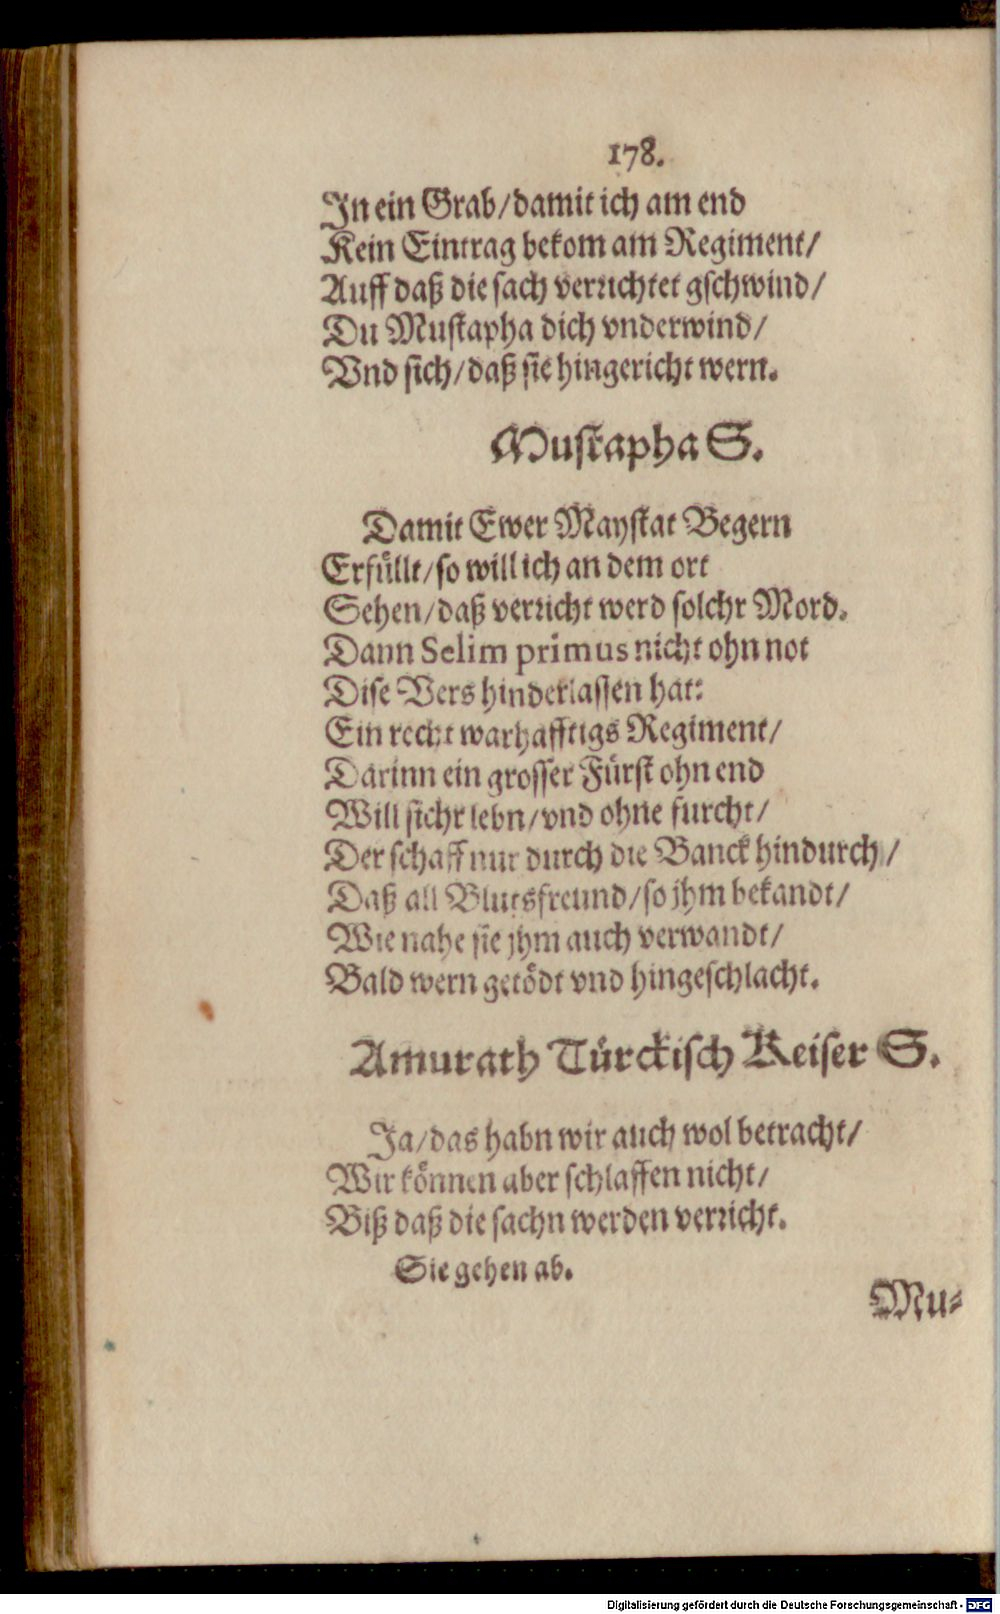 178.
In ein Grab/damit ich am end
Kein Eintrag bekom am Regiment/
Auff daß die sach verrichtet gschwind/
Du Mustapha dich vnderwind/
Vnd sich/daß sie hingericht wern.
Mustapha S.
Damit Ewer Maystat Begern
Erfüllt/so will ich an dem ort
Sehen/daß verricht werd solchr Mord.
Dann Selim primus nicht ohn not
Dise Vers hinderlassen hat:
Ein recht warhafftigs Regiment/
Darinn ein grosser Fürst ohn end
Will sichr lebn/vnd ohne furcht/
Der schaff nur durch die Banck hindurch/
Daß all Blutsfreund/so jhm bekandt/
Wie nahe sie jhm auch verwandt/
Bald wern getödt vnd hingeschlacht.
Amurath Türckisch Keiser S.
Ja/das habn wir auch wol betracht/
Wir können aber schlaffen nicht/
Biß daß die sachn werden verricht.
Sie gehen ab.
Mu-
Digitalisierung gefördert durch die Deutsche Forschungsgemeinschaft - DFG